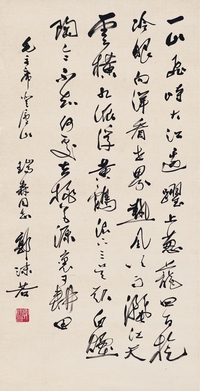 一山飛峙大江邊躍上葱蘢四百旋
冷眼向洋看世界熱風吹雨灑江天
雲橫九派浮黃鶴浪下三吳起白煙
陶令不知何處去桃花源裏可耕田
毛主席登廬山
瑞森同志 郭沫若